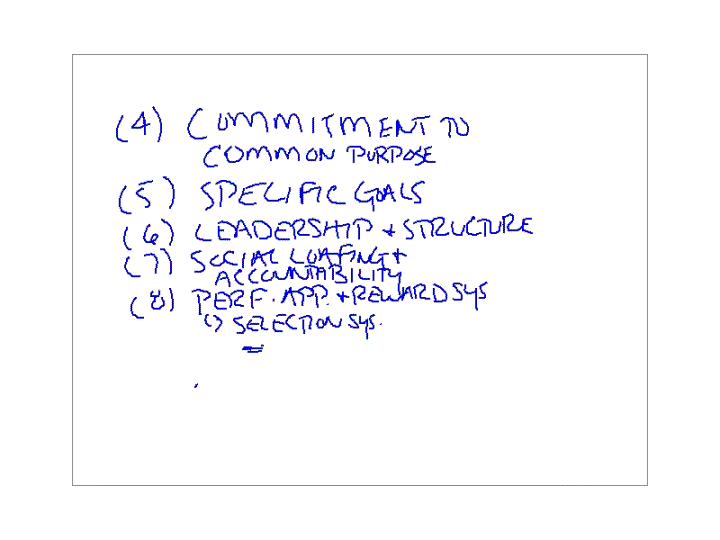 (4) COMMITMENT TO
COMMON PURPOSE
(5) SPECIFIC GOALS
(6) LEADERSHIP + STRUCTURE
(7) SOCIAL LOAFING +
ACCOUNTABILITY
(8) PERF. APP. + REWARD SYS
() SELECTION SYS.